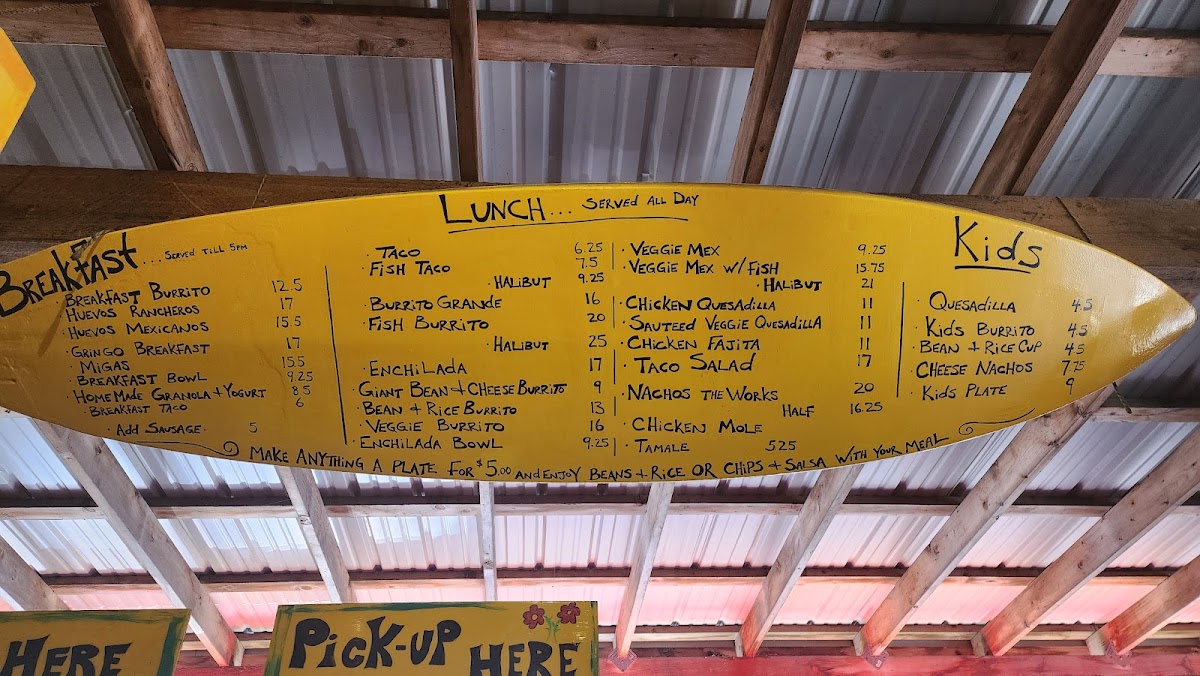 Breakfast ... Served till 5pm
· Breakfast Burrito 12.5
Huevos Rancheros 17
· Huevos Mexicanos 15.5
· Gringo Breakfast 17
· Migas 15.5
· Breakfast Bowl 9.25
· HomeMade Granola + Yogurt 8.5
Breakfast Taco 6
· Add Sausage · 5
Lunch ... Served All Day
· Taco 6.25
· Fish Taco 7.5
· Halibut 9.25
· Burrito Grande 16
· Fish Burrito 20
· Halibut 25
· Enchilada 17
· Giant Bean + Cheese Burrito 9
· Bean + Rice Burrito 13
· Veggie Burrito 16
· Enchilada Bowl 9.25
· Veggie Mex 9.25
· Veggie Mex w/ Fish 15.75
· Halibut 21
· Chicken Quesadilla 11
· Sauteed Veggie Quesadilla 11
· Chicken Fajita 11
· Taco Salad 17
· Nachos the Works 20
Half 16.25
· Chicken Mole
· Tamale 5.25
Kids
· Quesadilla 4.5
· Kids Burrito 4.5
· Bean + Rice Cup 4.5
· Cheese Nachos 7.75
· Kids Plate 9
Make Anything a Plate for $5.00 and enjoy Beans + Rice or Chips + Salsa with your meal
Here
Pick-up
Here